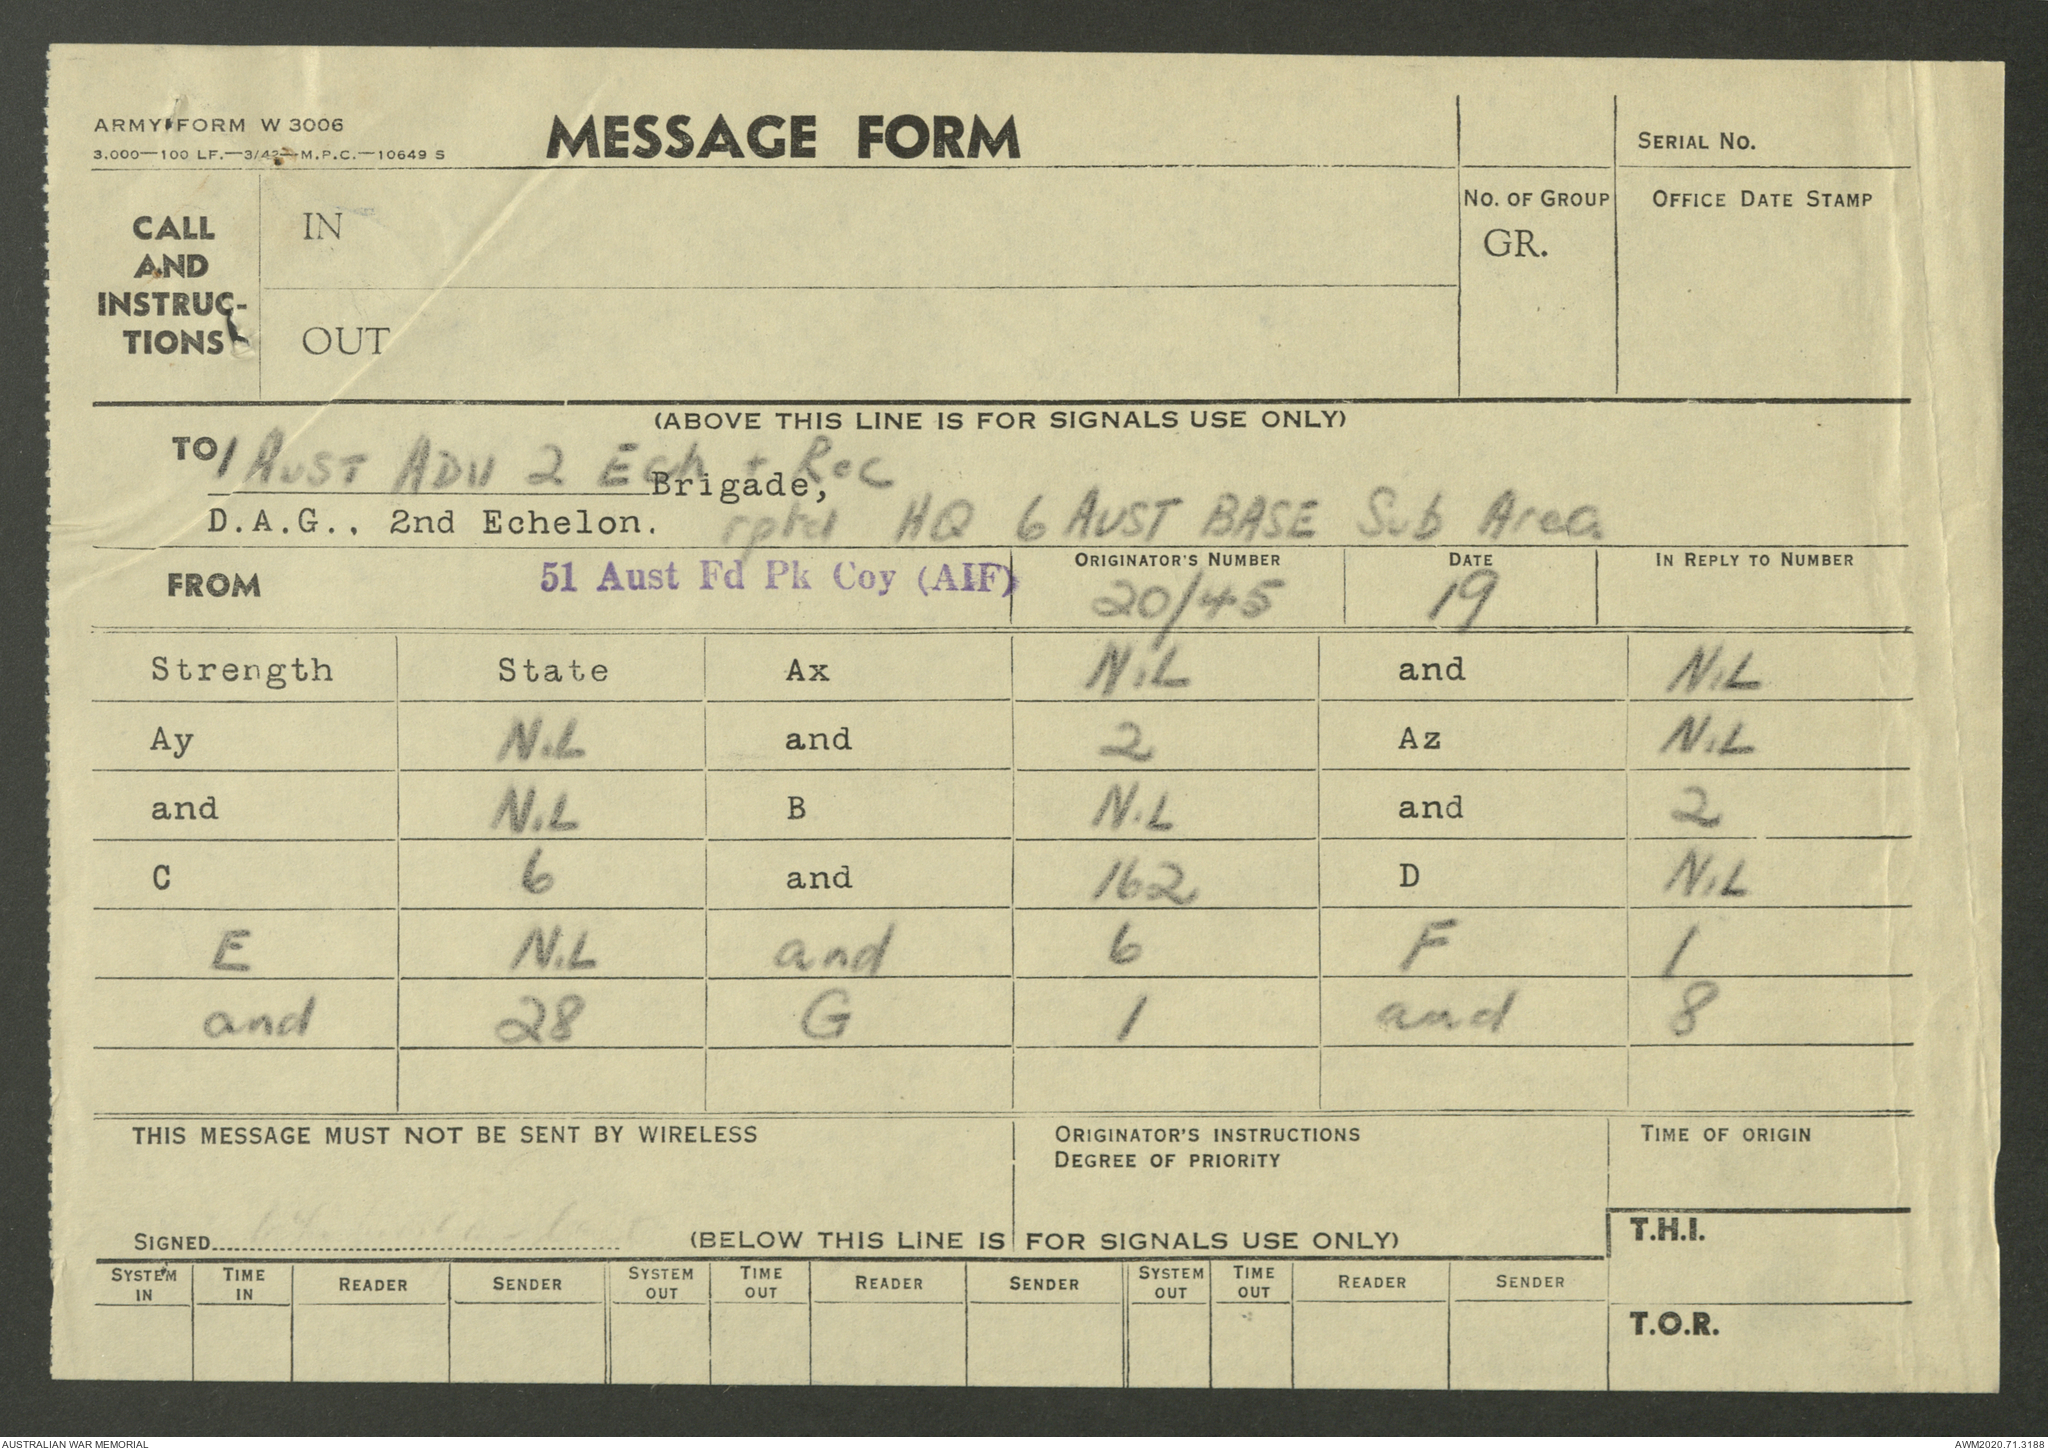 ARMY FORM W 3006
3,000—100 LF.—3/42—M.P.C.—10649 S
MESSAGE FORM
SERIAL No.
CALL AND INSTRUC-TIONS
IN
OUT
No. OF GROUP
GR.
OFFICE DATE STAMP
(ABOVE THIS LINE IS FOR SIGNALS USE ONLY)
TO 1 AUST ADV 2 Ech + Rec
Brigade,
D.A.G., 2nd Echelon. rptd HQ 6 AUST BASE Sub Area
FROM 51 Aust Fd Pk Coy (AIF)
ORIGINATOR'S NUMBER 20/45
DATE 19
IN REPLY TO NUMBER
Strength State Ax NiL and NiL
Ay NiL and 2 Az NiL
and NiL B NiL and 2
C 6 and 162 D NiL
E NiL and 6 F 1
and 28 G 1 and 8
THIS MESSAGE MUST NOT BE SENT BY WIRELESS
ORIGINATOR'S INSTRUCTIONS
DEGREE OF PRIORITY
TIME OF ORIGIN
SIGNED
(BELOW THIS LINE IS FOR SIGNALS USE ONLY)
T.H.I.
SYSTEM IN TIME IN READER SENDER SYSTEM OUT TIME OUT READER SENDER SYSTEM OUT TIME OUT READER SENDER
T.O.R.
AUSTRALIAN WAR MEMORIAL
AWM2020.71.3188